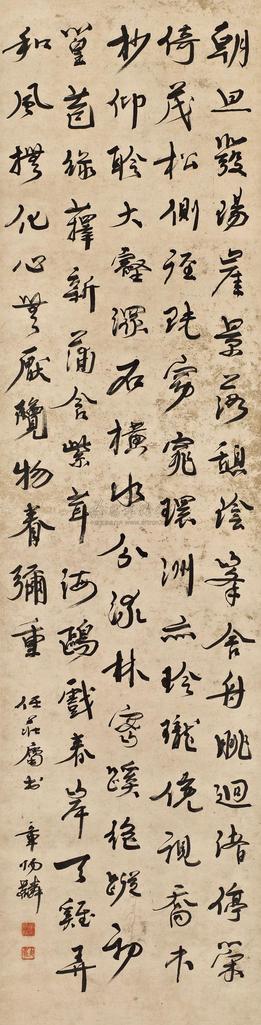 朝旦發陽崖景落憩陰峯舍舟眺迴渚停策
倚茂松側徑既窈窕環洲亦玲瓏俛視喬木
杪仰聆大壑灇石橫水分流林密蹊絕蹤初
篁苞綠籜新蒲含紫茸海鷗戲春岸天雞弄
和風撫化心無厭覽物眷彌重
章炳麟